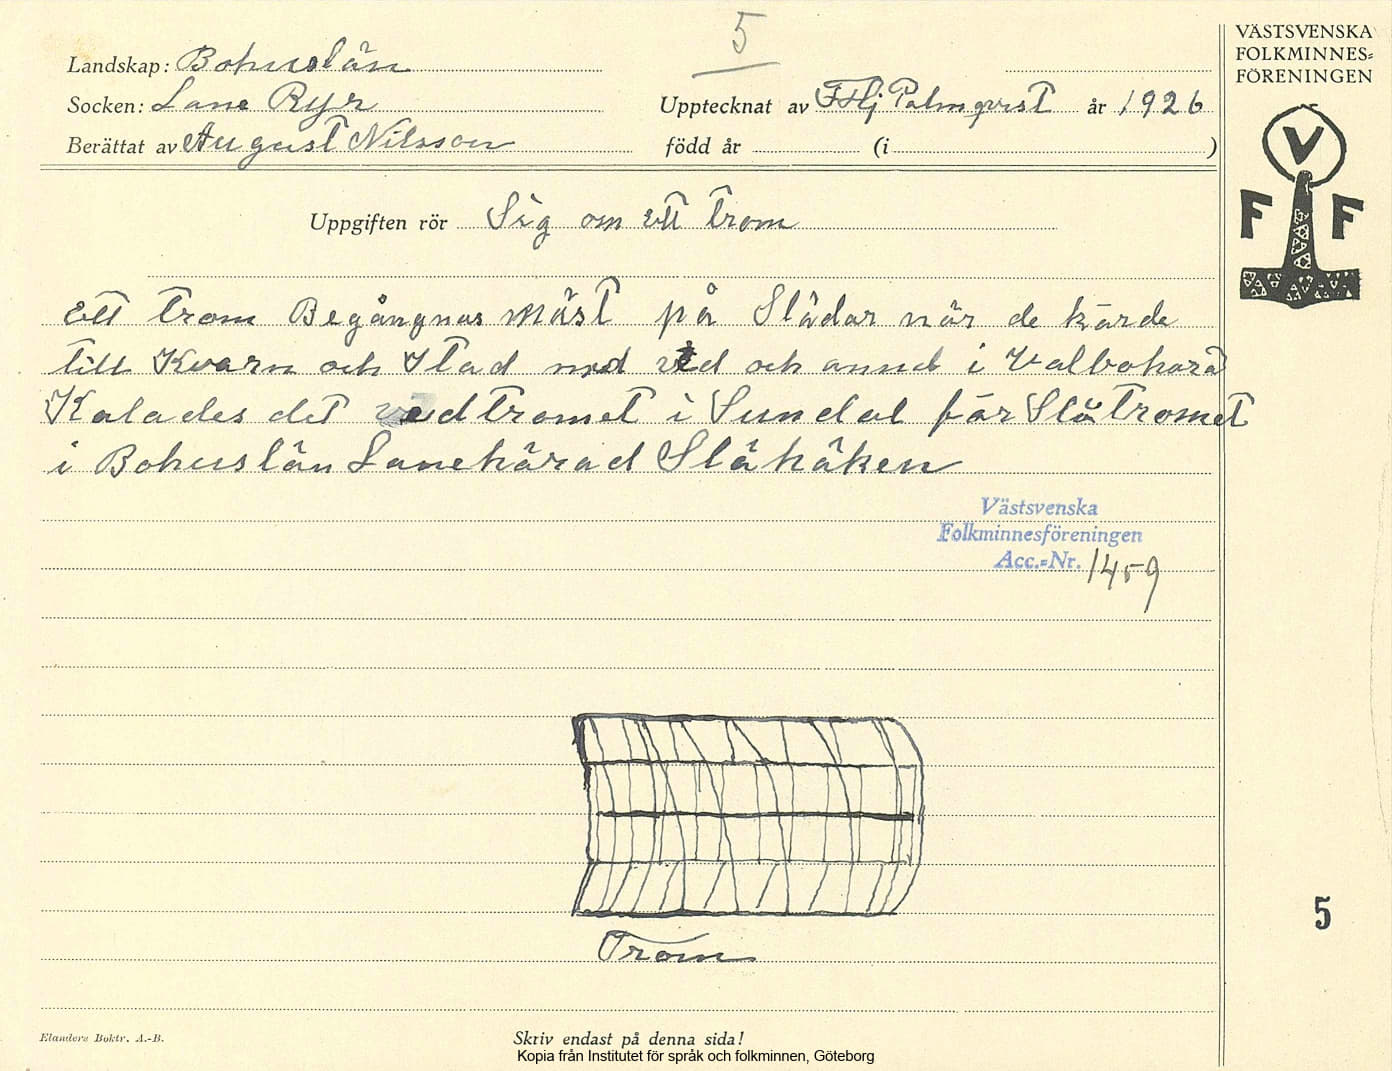 5
VÄSTSVENSKA
FOLKMINNES=
FÖRENINGEN
V
F F
Landskap: Bohuslän
Socken: Lane Ryr
Upptecknat av F Hj Palmqvist år 1926
Berättat av August Nilsson
född år (i )
Uppgiften rör Sig om ett trom
Ett trom Begångnas mäst på Slädar när de kärde
till Kvarn och Stad med ved och annd i Valbohärä
Kalades det vedtromet i Sundal får Slätromet
i Bohuslän Lanehärad Slähäken
Västsvenska
Folkminnesföreningen
Acc.=Nr. 1459
5
Trom
Elanders Boktr. A.-B.
Skriv endast på denna sida!
Kopia från Institutet för språk och folkminnen, Göteborg